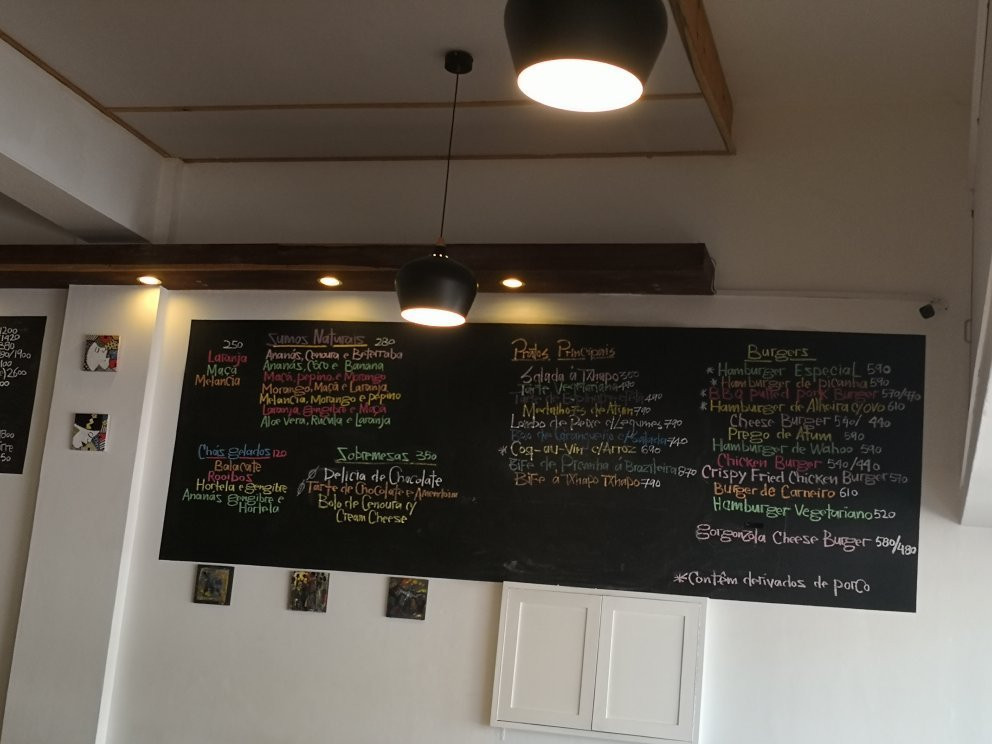 1200
1420
380
80/1900
2600
250
Laranja
Maçã
Melancia
Sumos Naturais 280
Ananás, Cenoura e Beterraba
Ananás, Côro e Banana
Maçã, pepino e Morango
Morango, Maçã e Laranja
Melancia, Morango e pepino
Laranja, gengibre e Maçã
Aloe Vera, Rúcula e Laranja
Chás gelados 120
Balacate
Rooibos
Hortela e gengibre
Ananás, gengibre e
Hortela
Sobremesas 350
Delicia de Chocolate
Tarte de Chocolate e
Bolo de Cenoura c/
Cream Cheese
Pratos Principais
Salada à Txapo
Tarte Vegetariana
Medalhões de Atum
Lombo de Peixe c/Legumes 790
c/Salada 740
*Coq-au-Vin c/Arroz 690
Bife de Picanha à Brazileira 870
Bife à Txapo Txapo 790
Burgers
*Hamburger Especial 590
*Hamburger de picanha 590
*BBQ pulled pork Burger 570/470
*Hamburger de Alheira c/ovo 610
Cheese Burger 540/440
Prego de Atum 590
Hamburger de Wahoo 590
Chicken Burger 540/440
Crispy Fried Chicken Burger 570
Burger de Carneiro 610
Hamburger Vegetariano 520
Gorgonzola Cheese Burger 580/480
*Contêm derivados de porco